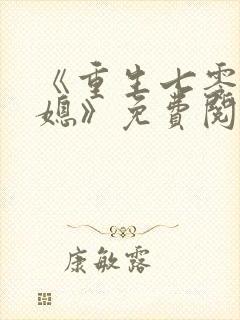 《重生七零
媳》免費閱
康敏露